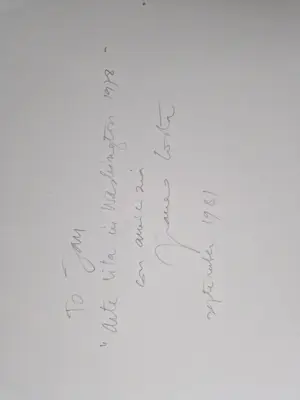 To Jan
" Arte Vita in Washington 1978 "
con amicizia
september 1981